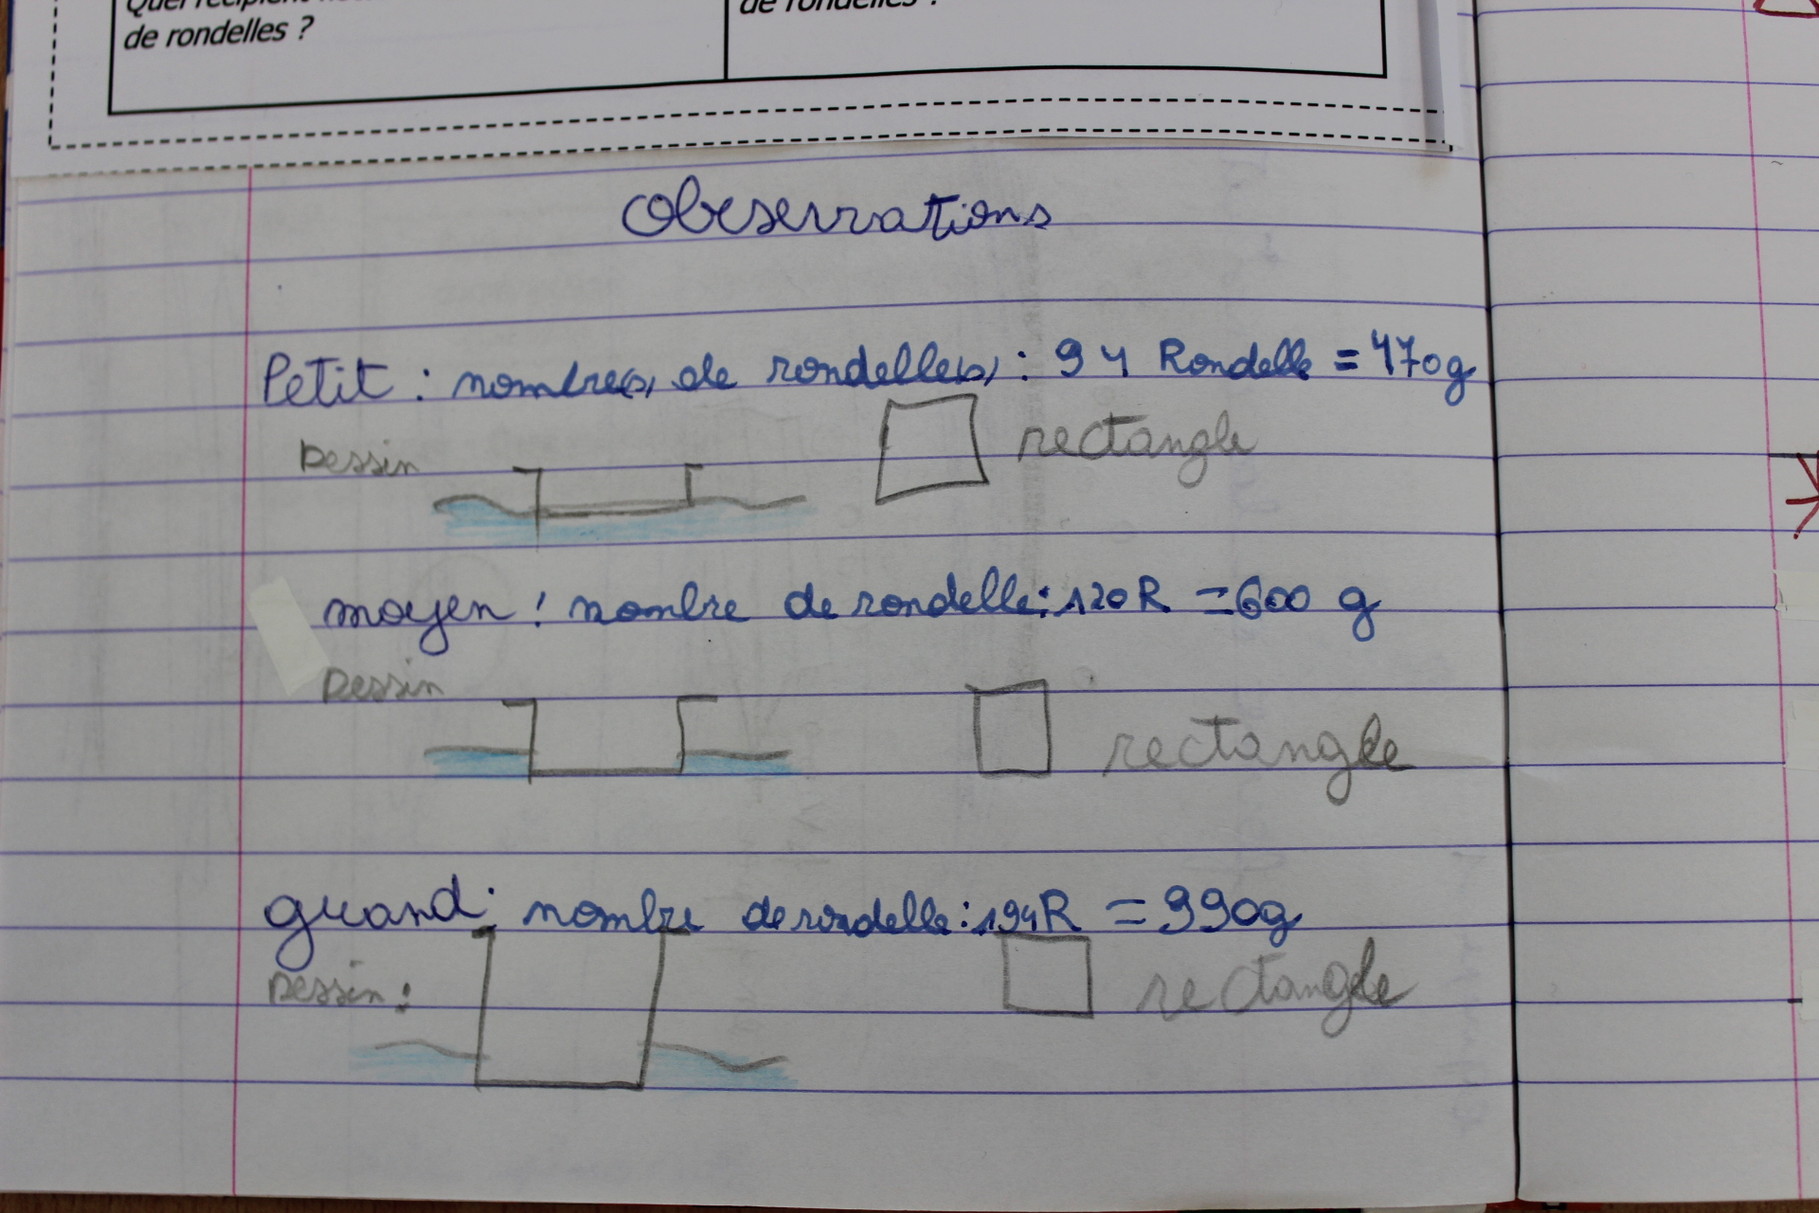 Quel récipient
de rondelles ?
de rondelles ?
Obeservations
Petit : nombre(s) de rondelle(s) : 94 Rondelle = 470g
Dessin
rectangle
moyen : nombre de rondelle : 120 R = 600 g
Dessin
rectangle
grand : nombre de rondelle : 194R = 990g
Dessin :
rectangle